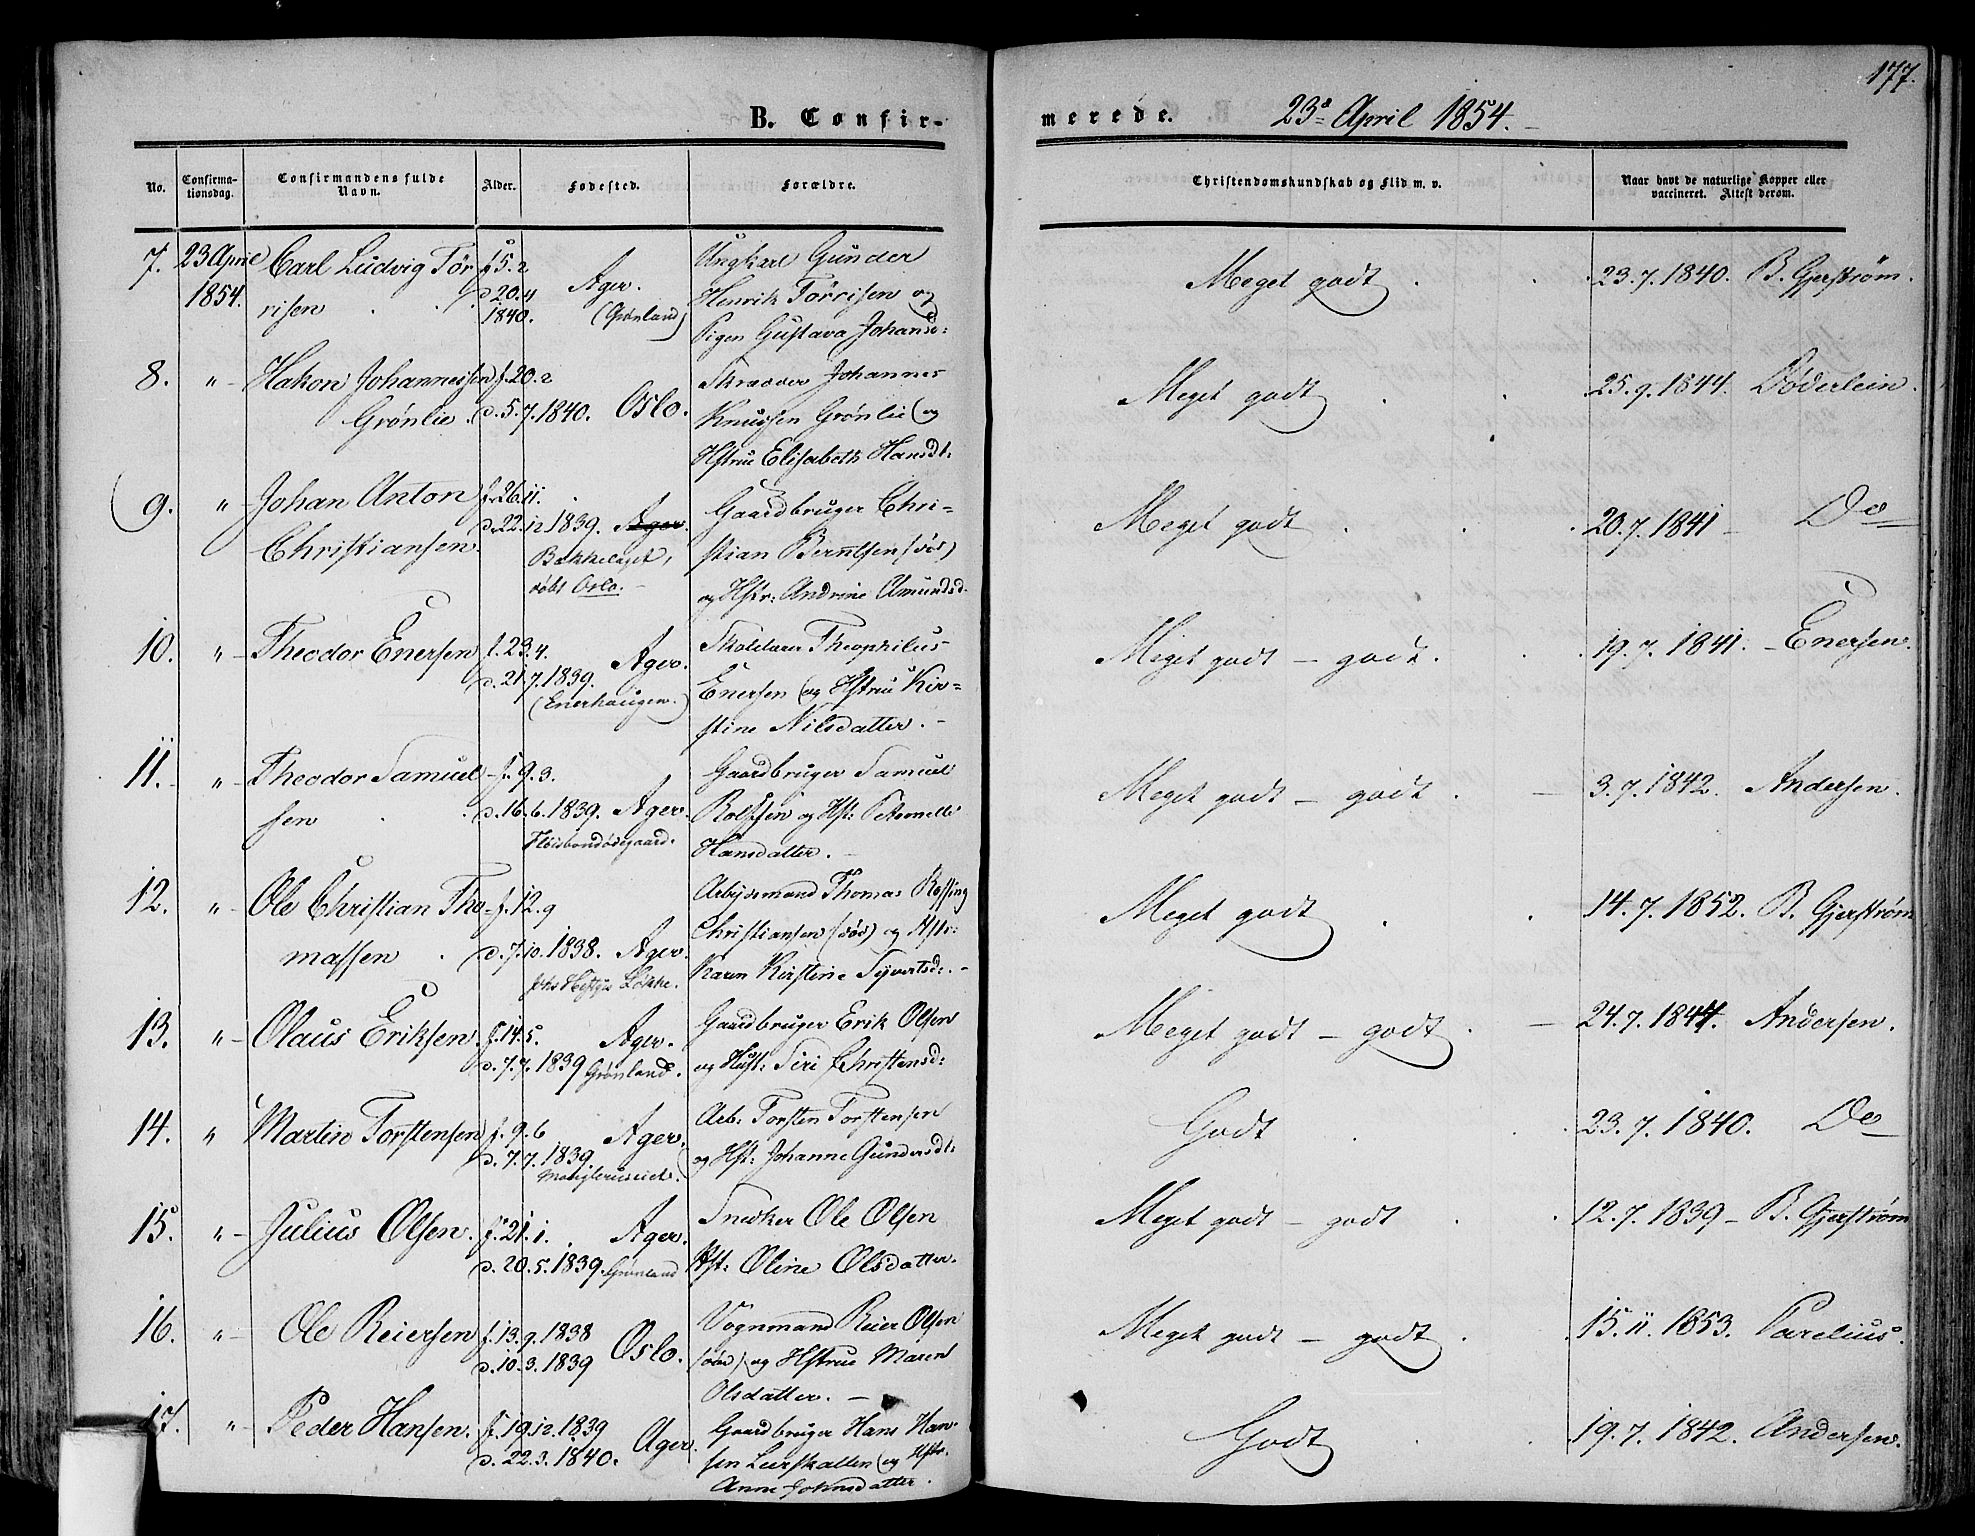 177.
B. Confir-
merede. 23de April 1854.
No. Confirma-tionsdag. Confirmandens fulde Navn. Alder. Fødested. Forældre. Christendomskundskab og Flid m. v. Naar havt de naturlige Kopper eller vaccineret. Attest derom.
7. 23 April Carl Ludvig Tør f. 5. 2 Ager. Ungkarl Gunder Meget godt 23. 7. 1840. B. Gjerstrøm.
1854. risen d. 20. 4 Henrik Tørrisen og
1840. (Grønland) Pigen Gustava Johansd:
8. " Hakon Johannessen f. 20. 2 Skræder Johannes Meget godt 25. 9. 1844. Døderlein.
Grønlie. d. 5. 7. 1840. Oslo. Knutsen Grønlie og
Hstrue Elisabeth Hansdt:
9. " Johan Anton f. 26. 11. Gaardbruger Chri= Meget godt 20. 7. 1841 Do
Christiansen. d. 22. 12 1839. Ager. stian Berntsen (død)
Bækkelaget, og Hstr: Andrine Amundsd.
døbt Oslo.
10. " Theodor Enersen f. 23. 4. Ager. Skolelærer Theophilus Meget godt – godt. 19. 7. 1841. Enersen.
d. 21. 7. 1839. Enersen og Hstrue Kir=
(Enerhaugen.) stine Nilsdatter.
11. " Theodor Samuel f. 9. 3. Gaardbruger Samuel Meget godt – godt. 3. 7. 1842. Andersen.
sen d. 16. 6. 1839. Ager. Rolfsen og Hst: Petronelle
Hansdatter.
12. " Ole Christian Tho- f. 12. 9 Arbeidsmand Thomas Meget godt 14. 7. 1852. B. Gjerstrøm
massen d. 7. 10. 1838. Ager. Christiansen (død) og Hstr:
Løkke. Karen Kirstine Syvertsd:
13. " Olaus Eriksen. f. 14. 5. Ager. Gaardbruger Erik Olsen Meget godt – godt. 24. 7. 1844. Andersen.
d. 7. 7. 1839 Grønland. og Hust: Siri Christensd:
14. " Martin Torstensen f. 9. 6 Ager. Arb: Torsten Torstensen Godt 23. 7. 1840. Do
d. 7. 7. 1839 og Hst: Johanne Gundersdt:
15. " Julius Olsen. f. 21. 1. Ager. Snedker Ole Olsen Meget godt – godt 12. 7. 1839 – B. Gjerstrøm
d. 20. 5. 1839 Grønland Hst: Oline Olsdatter.
16. " Ole Reiersen f. 13. 9. 1838 Oslo. Vognmand Reier Olsen Meget godt – godt. 15. 11. 1853. Parelius.
d. 10. 3. 1839 (død) og Hstrue Maren
Olsdatter.
17. " Peder Hansen. f. 19. 12. 1839 Ager. Gaardbruger Hans Han- Godt 19. 7. 1842. Andersen.
d. 22. 3. 1840. sen Leirskallen og Hstr.
Anne Johnsdatter.